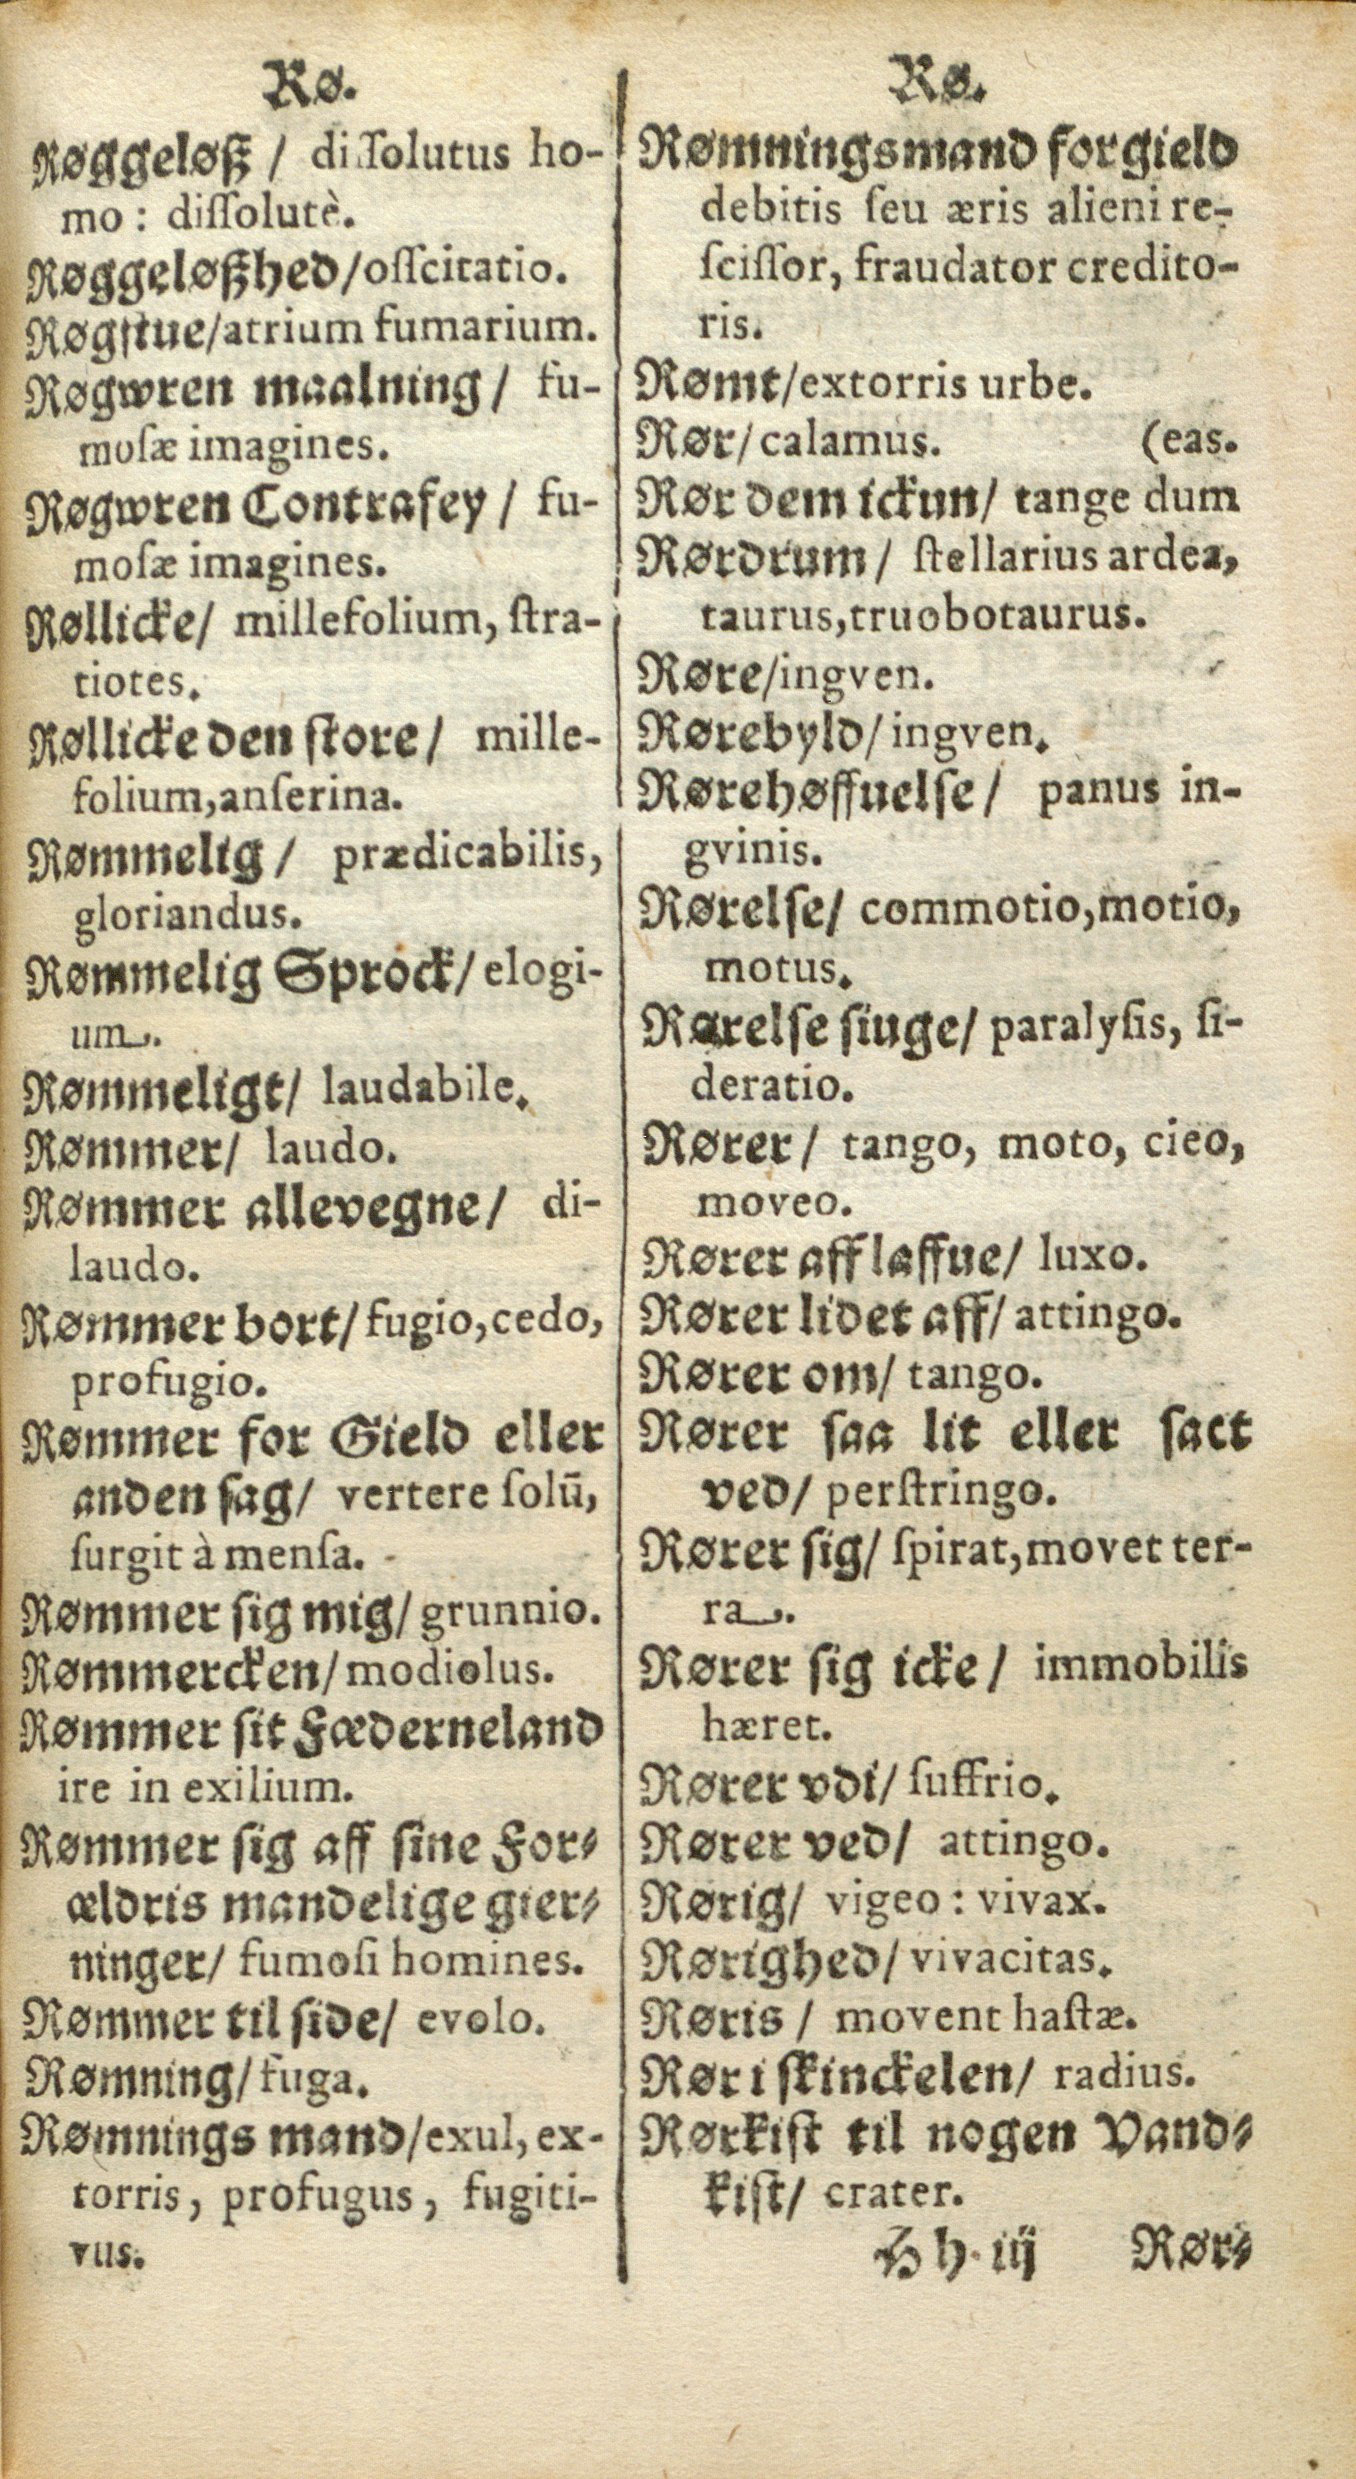 Rø.
Røggeløß / diſſolutus ho-
mo: diſſolutè.
Røggeløßhed/oſſcitatio.
Røgſtue/atrium fumarium.
Røgwren maalning / fu-
moſæ imagines.
Røgwren Contrafey / fu-
moſæ imagines.
Røllicke/ millefolium, ſtra-
tiotes.
Røllicke den ſtore / mille-
folium,anſerina.
Rømmelig / prædicabilis,
gloriandus.
Rømmelig Sprock/ elogi-
um.
Rømmeligt/ laudabile.
Rømmer/ laudo.
Rømmer allevegne/ di-
laudo.
Rømmer bort/ fugio, cedo,
profugio.
Rømmer for Gield eller
anden ſag/ vertere ſolū,
ſurgit à menſa.
Rømmer ſig mig/ grunnio.
Rømmercken/ modiolus.
Rømmer ſit Fæderneland
ire in exilium.
Rømmer ſig aff ſine For⸗
ældris mandelige gier⸗
ninger/ fumoſi homines.
Rømmer til ſide/ evolo.
Rømning/ fuga.
Rømnings mand/exul, ex-
torris, profugus, fugiti-
vus.
Rø.
Rømningsmand for gield
debitis ſeu æris alieni re-
ſciſſor, fraudator credito-
ris.
Rømt/extorris urbe.
Rør/ calamus. (eas.
Rør dem ickun/ tange dum
Rørdrum / ſtellarius ardea,
taurus,truobotaurus.
Røre/ingven.
Rørebyld/ ingven.
Rørehøffuelſe / panus in-
gvinis.
Rørelſe/ commotio,motio,
motus.
Rørelſe ſiuge/ paralyſis, ſi-
deratio.
Rører / tango, moto, cieo,
moveo.
Rører aff laffue/ luxo.
Rører lidet aff/ attingo.
Rører om/ tango.
Rører ſaa lit eller ſact
ved/ perſtringo.
Rører ſig/ ſpirat,movet ter-
ra.
Rører ſig icke / immobilis
hæret.
Rører vdi/ ſuffrio.
Rører ved/ attingo.
Rørig/ vigeo: vivax.
Rørighed/ vivacitas.
Røris / movent haſtæ.
Rør i ſkinckelen/ radius.
Rørkiſt til nogen Vand⸗
kiſt/ crater.
Hh iij Rør⸗